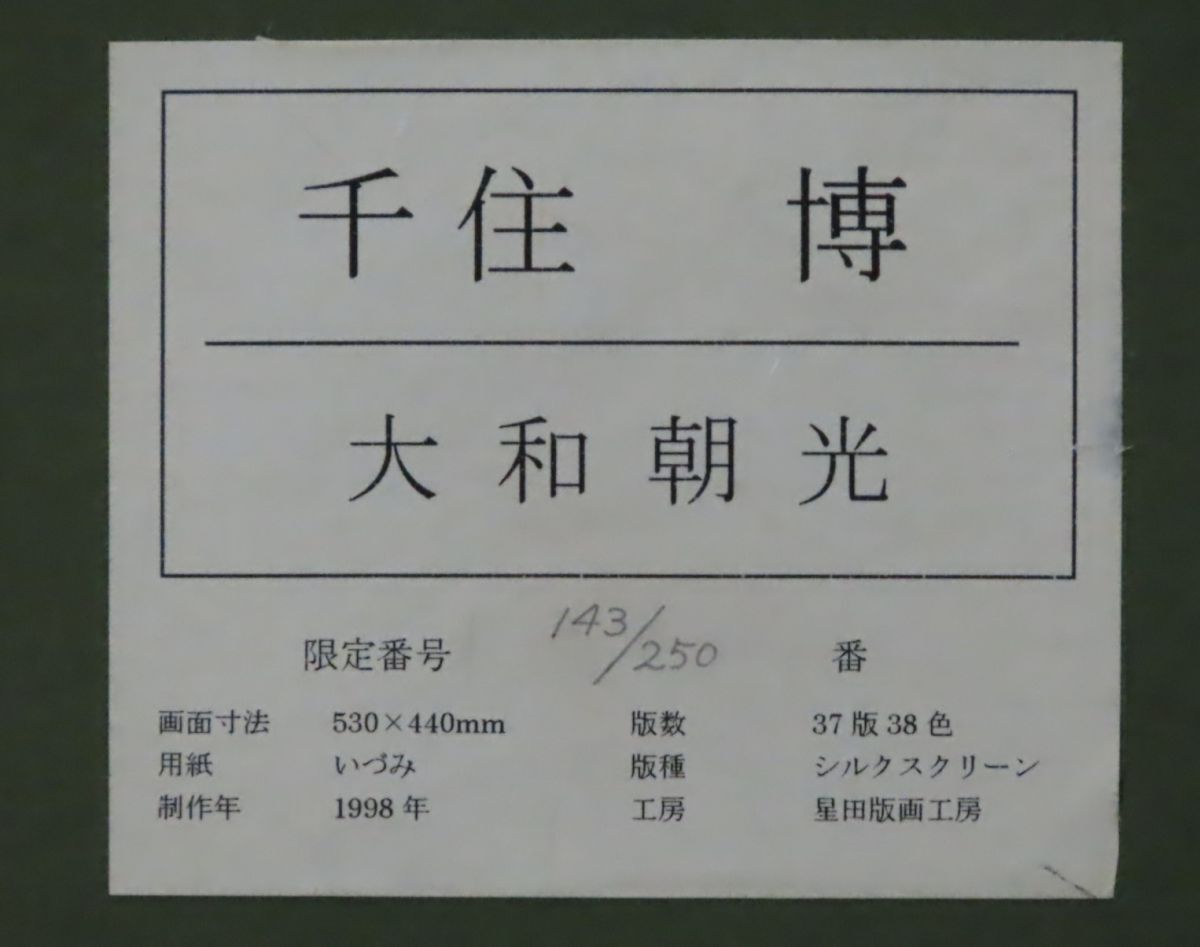 千住 博
大和朝光
限定番号 143/250 番
画面寸法 530×440mm 版数 37版38色
用紙 いづみ 版種 シルクスクリーン
制作年 1998年 工房 星田版画工房